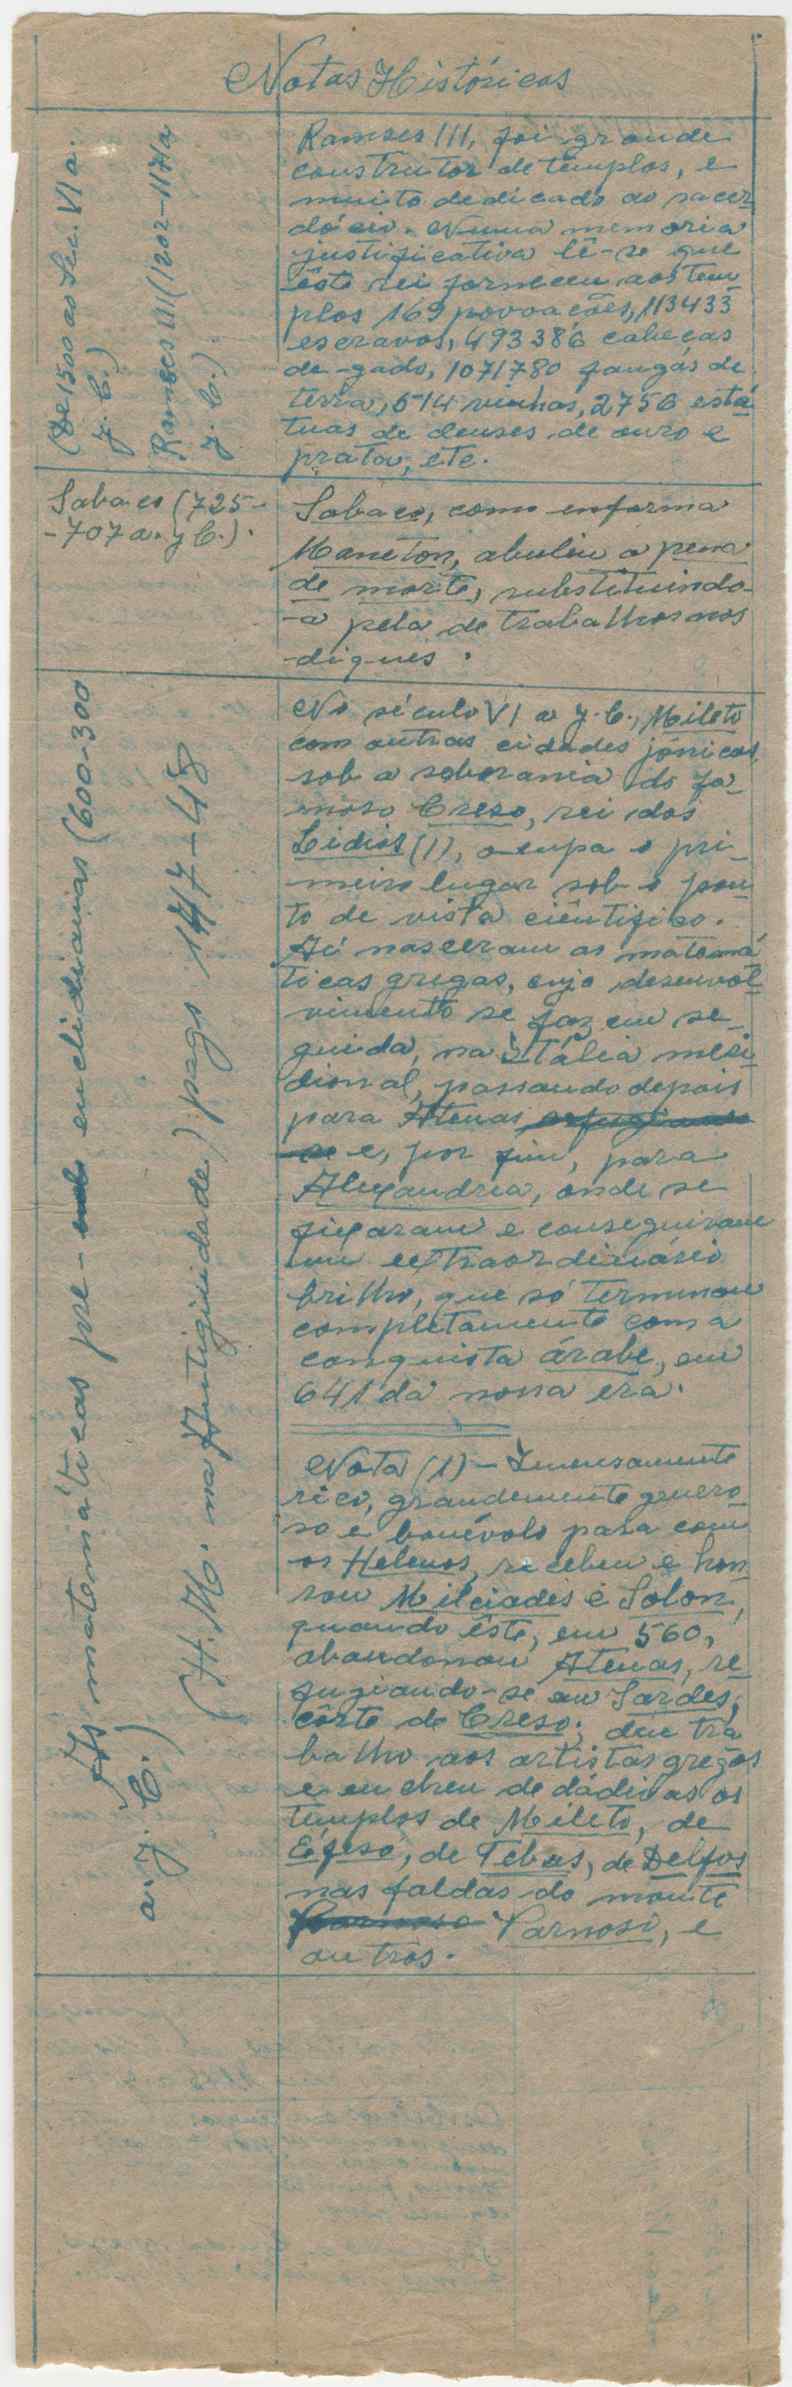 Notas Históricas
(De 1500 ao Sec. VI a.
J. C.)
Ramses III (1202-1171 a
J. C.)
Ramses III, foi grande
construtor de templos, e
muito dedicado ao sacer
dócio. Numa memoria
justificativa lê-se que
êste rei forneceu aos tem
plos 169 povoações, 113433
escravos, 493386 cabeças
de gado, 1071780 fangas de
terra, 514 vinhas, 2756 está
tuas de deuses de ouro e
prata, etc.
Sabaco (725-
-707 a. J C.).
Sabaco, como informa
Maneton, aboliu a pena
de morte, substituindo-
-a pela de trabalhos nos
diques.
As matemáticas pre- euclidianas (600-300
a. J. C.)
(H. M. na Antiguidade) pags 147-48
No século VI a J. C., Mileto
com outras cidades jónicas,
sob a soberania do fa-
moso Creso, rei dos
Lidios (1), ocupa o pri-
meiro lugar sob o pon
to de vista ciêntifico.
Aí nasceram as matemá
ticas gregas, cujo desenvol
vimento se faz em se-
guida, na Itália meri
dional, passando depois
para Atenas refugiando
se e, por fim, para
Alexandria, onde se
fixaram e conseguiram
um extraordinário
brilho, que só terminou
completamente com a
conquista árabe, em
641 da nossa era.
Nota (1) - Imensamente
rico, grandemente genero
so e benévolo para com
os Helenos, recebeu e hon
rou Milciades e Solon,
quando êste, em 560,
abandonou Atenas, re
fugiando-se em Sardes,
côrte de Creso; deu tra
balho aos artistas gregos
e encheu de dádivas os
templos de Mileto, de
Efeso, de Tebas, de Delfos
nas faldas do monte
Parnaso Parnosi, e
outros.